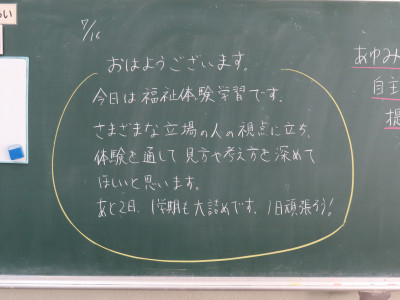 らい
7/16
おはようございます。
今日は福祉体験学習です。
さまざまな立場の人の視点に立ち、
体験を通して見方や考え方を深めて
ほしいと思います。
あと2日、1学期も大詰めです。1日頑張ろう!
あゆみ
自主
提